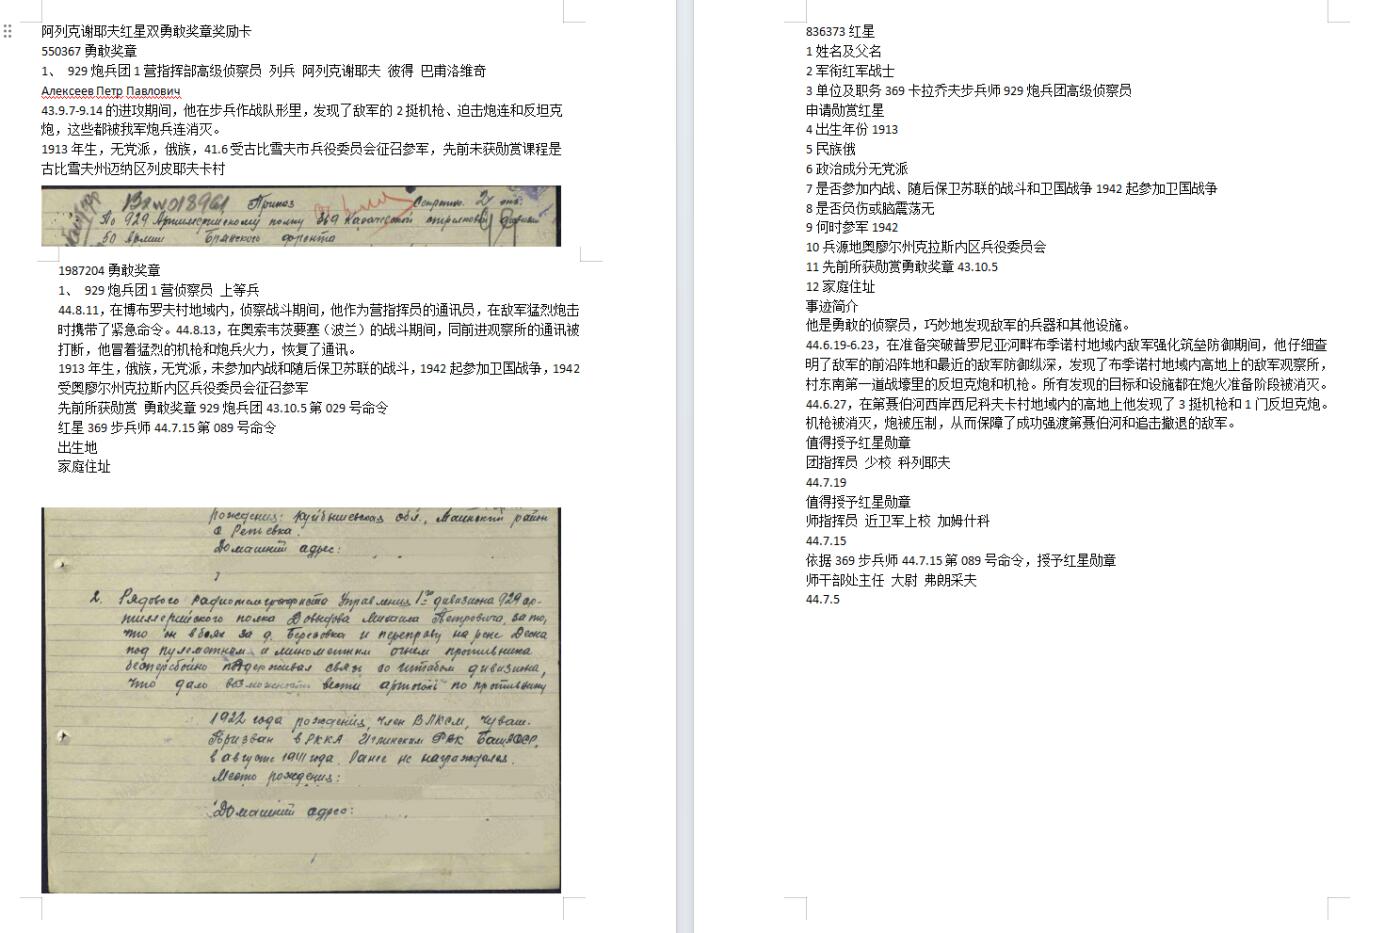 阿列克谢耶夫红星双勇敢奖章奖励卡
550367 勇敢奖章
1、 929 炮兵团 1 营指挥部高级侦察员 列兵 阿列克谢耶夫 彼得 巴甫洛维奇
Алексеев Петр Павлович
43.9.7-9.14 的进攻期间，他在步兵作战队形里，发现了敌军的 2 挺机枪、迫击炮连和反坦克
炮，这些都被我军炮兵连消灭。
1913 年生，无党派，俄族，41.6 受古比雪夫市兵役委员会征召参军，先前未获勋赏课程是
古比雪夫州迈纳区列皮耶夫卡村
Вх №018961 Приказ
По 929 Артиллерийскому полку 369 стрелковой дивизии
50 Армии Брянского фронта
1987204 勇敢奖章
1、 929 炮兵团 1 营侦察员 上等兵
44.8.11，在博布罗夫村地域内，侦察战斗期间，他作为营指挥员的通讯员，在敌军猛烈炮击
时携带了紧急命令。44.8.13，在奥索韦茨要塞（波兰）的战斗期间，同前进观察所的通讯被
打断，他冒着猛烈的机枪和炮兵火力，恢复了通讯。
1913 年生，俄族，无党派，未参加内战和随后保卫苏联的战斗，1942 起参加卫国战争，1942
受奥廖尔州克拉斯内区兵役委员会征召参军
先前所获勋赏 勇敢奖章 929 炮兵团 43.10.5 第 029 号命令
红星 369 步兵师 44.7.15 第 089 号命令
出生地
家庭住址
рождения: Куйбышевская обл., Маинский район
Домашний адрес:
2. Рядового радиотелеграфиста Управления 1го дивизиона 929 ар-
тиллерийского полка Давыдова Михаила Петровича, за то,
что он в боях за д. Березовка и переправу на реке Десна
под пулеметным и минометным огнем противника
бесперебойно поддерживал связь со штабом дивизиона,
что дало возможность вести артогонь по противнику
1922 года рождения, член ВЛКСМ, чуваш.
Призван в РККА Иглинским РВК БашАССР,
в августе 1941 года. Ранее не награждался.
Место рождения:
Домашний адрес:
836373 红星
1 姓名及父名
2 军衔红军战士
3 单位及职务 369 卡拉乔夫步兵师 929 炮兵团高级侦察员
申请勋赏红星
4 出生年份 1913
5 民族俄
6 政治成分无党派
7 是否参加内战、随后保卫苏联的战斗和卫国战争 1942 起参加卫国战争
8 是否负伤或脑震荡无
9 何时参军 1942
10 兵源地奥廖尔州克拉斯内区兵役委员会
11 先前所获勋赏勇敢奖章 43.10.5
12 家庭住址
事迹简介
他是勇敢的侦察员，巧妙地发现敌军的兵器和其他设施。
44.6.19-6.23，在准备突破普罗尼亚河畔布季诺村地域内敌军强化筑垒防御期间，他仔细查
明了敌军的前沿阵地和最近的敌军防御纵深，发现了布季诺村地域内高地上的敌军观察所，
村东南第一道战壕里的反坦克炮和机枪。所有发现的目标和设施都在炮火准备阶段被消灭。
44.6.27，在第聂伯河西岸西尼科夫卡村地域内的高地上他发现了 3 挺机枪和 1 门反坦克炮。
机枪被消灭，炮被压制，从而保障了成功强渡第聂伯河和追击撤退的敌军。
值得授予红星勋章
团指挥员 少校 科列耶夫
44.7.19
值得授予红星勋章
师指挥员 近卫军上校 加姆什科
44.7.15
依据 369 步兵师 44.7.15 第 089 号命令，授予红星勋章
师干部处主任 大尉 弗朗采夫
44.7.5